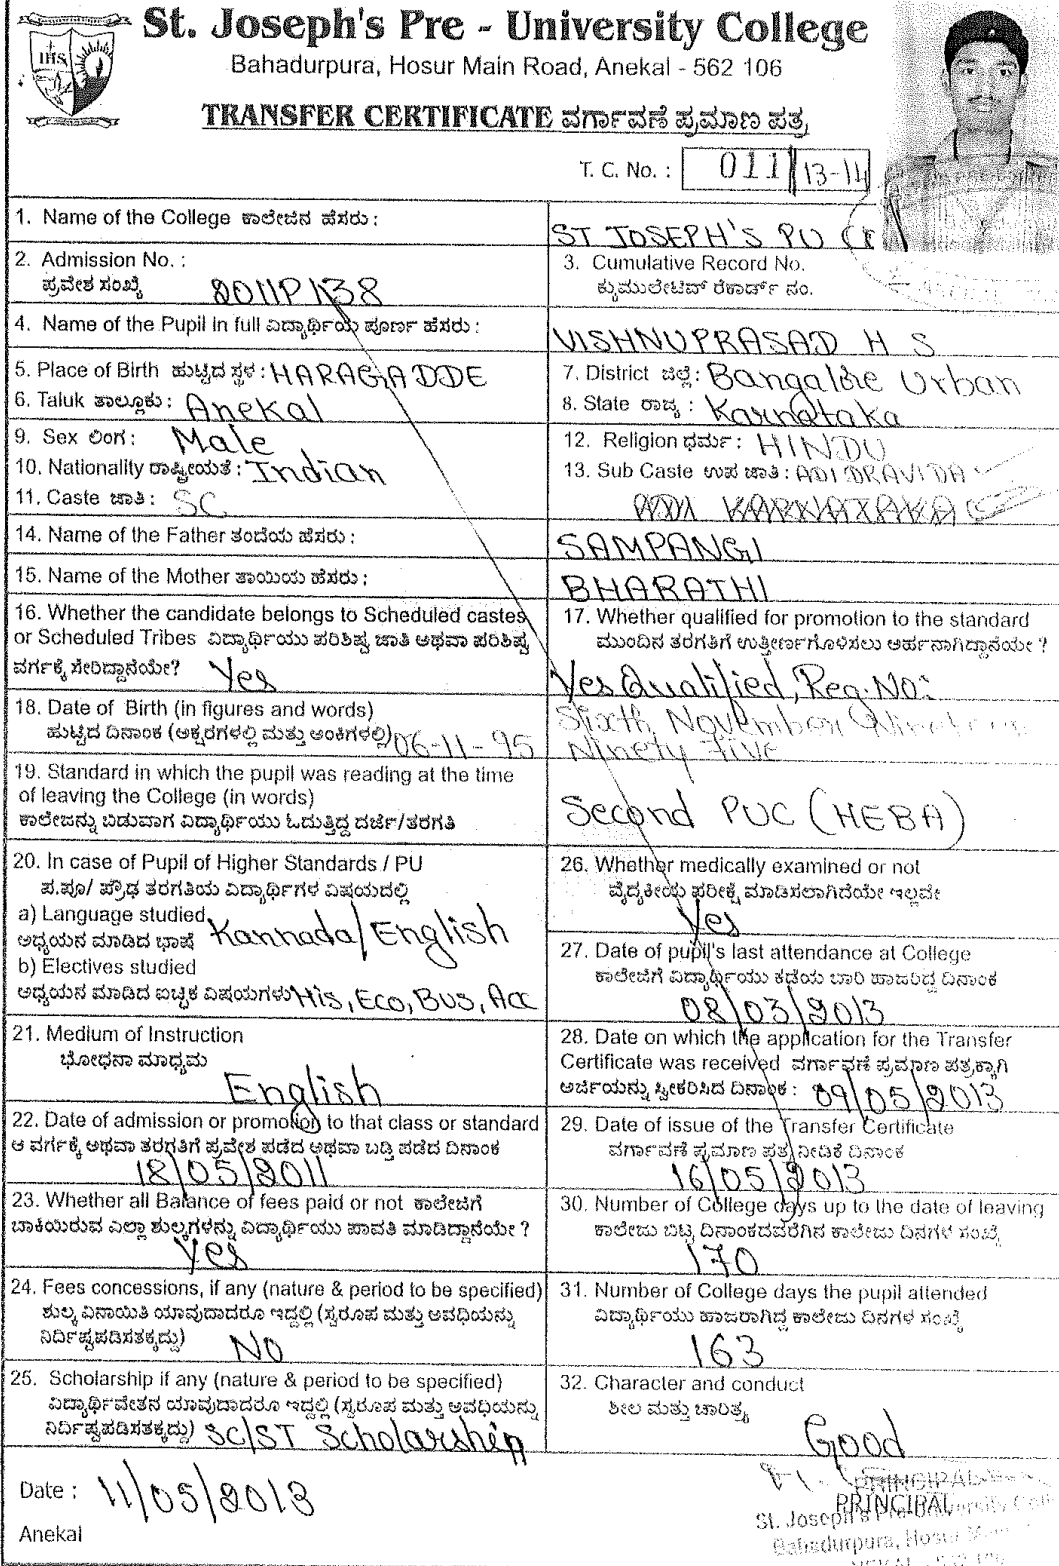 IHS
St. Joseph's Pre - University College
Bahadurpura, Hosur Main Road, Anekal - 562 106
TRANSFER CERTIFICATE ವರ್ಗಾವಣೆ ಪ್ರಮಾಣ ಪತ್ರ
T. C. No. : 011 13-14
1. Name of the College ಕಾಲೇಜಿನ ಹೆಸರು :
ST JOSEPH'S PU
2. Admission No. :
ಪ್ರವೇಶ ಸಂಖ್ಯೆ 2011P138
3. Cumulative Record No.
ಕ್ಯುಮುಲೇಟಿವ್ ರೆಕಾರ್ಡ್ ನಂ.
4. Name of the Pupil in full ವಿದ್ಯಾರ್ಥಿಯ ಪೂರ್ಣ ಹೆಸರು :
VISHNUPRASAD H S
5. Place of Birth ಹುಟ್ಟಿದ ಸ್ಥಳ : HARAGADDE
6. Taluk ತಾಲ್ಲೂಕು : Anekal
7. District ಜಿಲ್ಲೆ : Bangalore Urban
8. State ರಾಜ್ಯ : Karnataka
9. Sex ಲಿಂಗ : Male
10. Nationality ರಾಷ್ಟ್ರೀಯತೆ : Indian
11. Caste ಜಾತಿ : SC
12. Religion ಧರ್ಮ : HINDU
13. Sub Caste ಉಪ ಜಾತಿ : ADI DRAVIDA
ADI KARNATAKA
14. Name of the Father ತಂದೆಯ ಹೆಸರು :
SAMPANGI
15. Name of the Mother ತಾಯಿಯ ಹೆಸರು :
BHARATHI
16. Whether the candidate belongs to Scheduled castes
or Scheduled Tribes ವಿದ್ಯಾರ್ಥಿಯು ಪರಿಶಿಷ್ಟ ಜಾತಿ ಅಥವಾ ಪರಿಶಿಷ್ಟ
ವರ್ಗಕ್ಕೆ ಸೇರಿದ್ದಾನೆಯೇ? Yes
17. Whether qualified for promotion to the standard
ಮುಂದಿನ ತರಗತಿಗೆ ಉತ್ತೀರ್ಣಗೊಳಿಸಲು ಅರ್ಹನಾಗಿದ್ದಾನೆಯೇ ?
Yes Qualified, Reg. No:
18. Date of Birth (in figures and words)
ಹುಟ್ಟಿದ ದಿನಾಂಕ (ಅಕ್ಷರಗಳಲ್ಲಿ ಮತ್ತು ಅಂಕಿಗಳಲ್ಲಿ) 06-11-95
Sixth November Nineteen
Ninety Five
19. Standard in which the pupil was reading at the time
of leaving the College (in words)
ಕಾಲೇಜನ್ನು ಬಿಡುವಾಗ ವಿದ್ಯಾರ್ಥಿಯು ಓದುತ್ತಿದ್ದ ದರ್ಜೆ/ತರಗತಿ
Second PUC (HEBA)
20. In case of Pupil of Higher Standards / PU
ಪ.ಪೂ/ ಪ್ರೌಢ ತರಗತಿಯ ವಿದ್ಯಾರ್ಥಿಗಳ ವಿಷಯದಲ್ಲಿ
a) Language studied
ಅಧ್ಯಯನ ಮಾಡಿದ ಭಾಷೆ Kannada/English
b) Electives studied
ಅಧ್ಯಯನ ಮಾಡಿದ ಐಚ್ಛಿಕ ವಿಷಯಗಳು His, Eco, Bus, Acc
26. Whether medically examined or not
ವೈದ್ಯಕೀಯ ಪರೀಕ್ಷೆ ಮಾಡಿಸಲಾಗಿದೆಯೇ ಇಲ್ಲವೇ
Yes
27. Date of pupil's last attendance at College
ಕಾಲೇಜಿಗೆ ವಿದ್ಯಾರ್ಥಿಯು ಕಡೆಯ ಬಾರಿ ಹಾಜರಿದ್ದ ದಿನಾಂಕ
08/03/2013
21. Medium of Instruction
ಭೋಧನಾ ಮಾಧ್ಯಮ
English
28. Date on which the application for the Transfer
Certificate was received ವರ್ಗಾವಣೆ ಪ್ರಮಾಣ ಪತ್ರಕ್ಕಾಗಿ
ಅರ್ಜಿಯನ್ನು ಸ್ವೀಕರಿಸಿದ ದಿನಾಂಕ : 09/05/2013
22. Date of admission or promotion to that class or standard
ಆ ವರ್ಗಕ್ಕೆ ಅಥವಾ ತರಗತಿಗೆ ಪ್ರವೇಶ ಪಡೆದ ಅಥವಾ ಬಡ್ತಿ ಪಡೆದ ದಿನಾಂಕ
18/05/2011
29. Date of issue of the Transfer Certificate
ವರ್ಗಾವಣೆ ಪ್ರಮಾಣ ಪತ್ರ ನೀಡಿಕೆ ದಿನಾಂಕ
16/05/2013
23. Whether all Balance of fees paid or not ಕಾಲೇಜಿಗೆ
ಬಾಕಿಯಿರುವ ಎಲ್ಲಾ ಶುಲ್ಕಗಳನ್ನು ವಿದ್ಯಾರ್ಥಿಯು ಪಾವತಿ ಮಾಡಿದ್ದಾನೆಯೇ ?
Yes
30. Number of College days up to the date of leaving
ಕಾಲೇಜು ಬಿಟ್ಟ ದಿನಾಂಕದವರೆಗಿನ ಕಾಲೇಜು ದಿನಗಳ ಸಂಖ್ಯೆ
170
24. Fees concessions, if any (nature & period to be specified)
ಶುಲ್ಕ ವಿನಾಯಿತಿ ಯಾವುದಾದರೂ ಇದ್ದಲ್ಲಿ (ಸ್ವರೂಪ ಮತ್ತು ಅವಧಿಯನ್ನು
ನಿರ್ದಿಷ್ಟಪಡಿಸತಕ್ಕದ್ದು) NO
31. Number of College days the pupil attended
ವಿದ್ಯಾರ್ಥಿಯು ಹಾಜರಾಗಿದ್ದ ಕಾಲೇಜು ದಿನಗಳ ಸಂಖ್ಯೆ
163
25. Scholarship if any (nature & period to be specified)
ವಿದ್ಯಾರ್ಥಿವೇತನ ಯಾವುದಾದರೂ ಇದ್ದಲ್ಲಿ (ಸ್ವರೂಪ ಮತ್ತು ಅವಧಿಯನ್ನು
ನಿರ್ದಿಷ್ಟಪಡಿಸತಕ್ಕದ್ದು) SC/ST Scholarship
32. Character and conduct
ಶೀಲ ಮತ್ತು ಚಾರಿತ್ರ್ಯ
Good
Date : 11/05/2013
Anekal
PRINCIPAL
PRINCIPAL
St. Joseph's Pre-University
Bahadurpura, Hosur